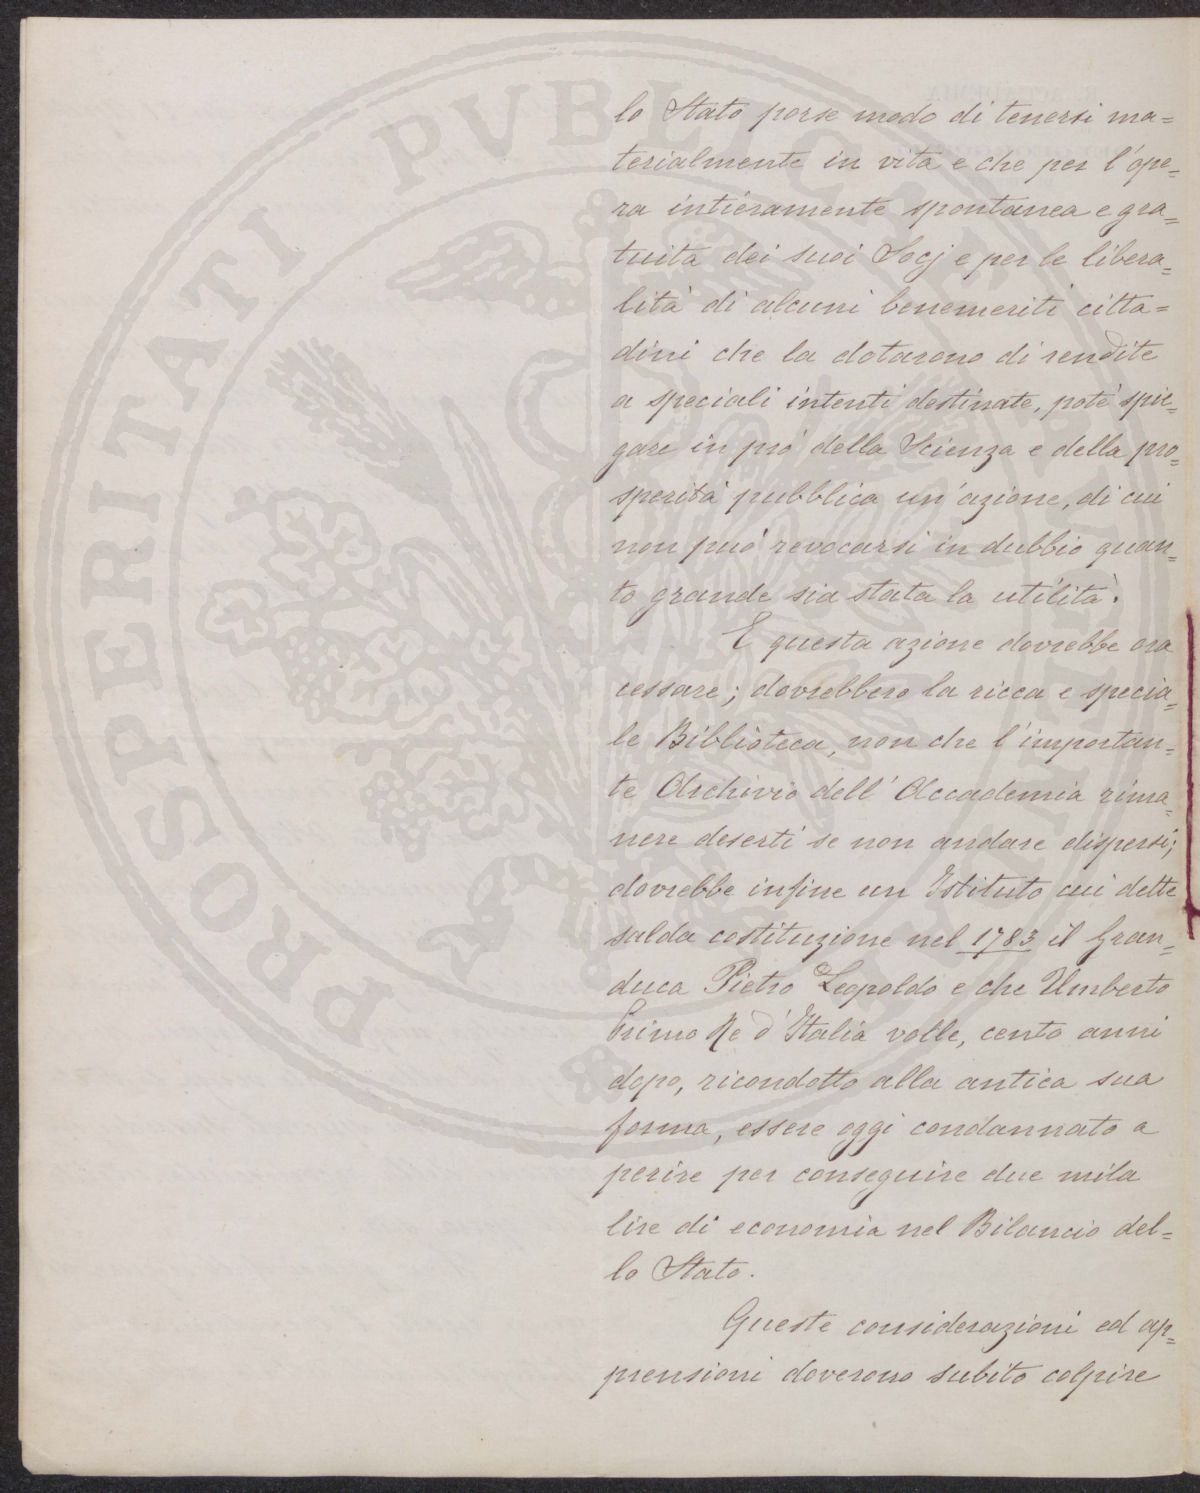 PROSPERITATI PVBLICAE
lo Stato porse modo di tenersi ma=
terialmente in vita e che per l'ope=
ra intieramente spontanea e gra=
tuita dei suoi Socj e per le libera=
lità di alcuni benemeriti citta=
dini che la dotarono di rendite
a speciali intenti destinate, potè spie=
gare in prò della Scienza e della pro=
sperità pubblica un'azione, di cui
non può revocarsi in dubbio quan=
to grande sia stata la utilità.
E questa azione dovrebbe ora
cessare; dovrebbero la ricca e specia=
le Biblioteca, non che l'importan=
te Archivio dell'Accademia rima=
nere deserti se non andare dispersi;
dovrebbe infine un Istituto cui dette
salda costituzione nel 1783 il Gran=
duca Pietro Leopoldo e che Umberto
Primo Re d'Italia volle, cento anni
dopo, ricondotto alla antica sua
forma, essere oggi condannato a
perire per conseguire due mila
lire di economia nel Bilancio del=
lo Stato.
Queste considerazioni ed ap=
prensioni doverono subito colpire